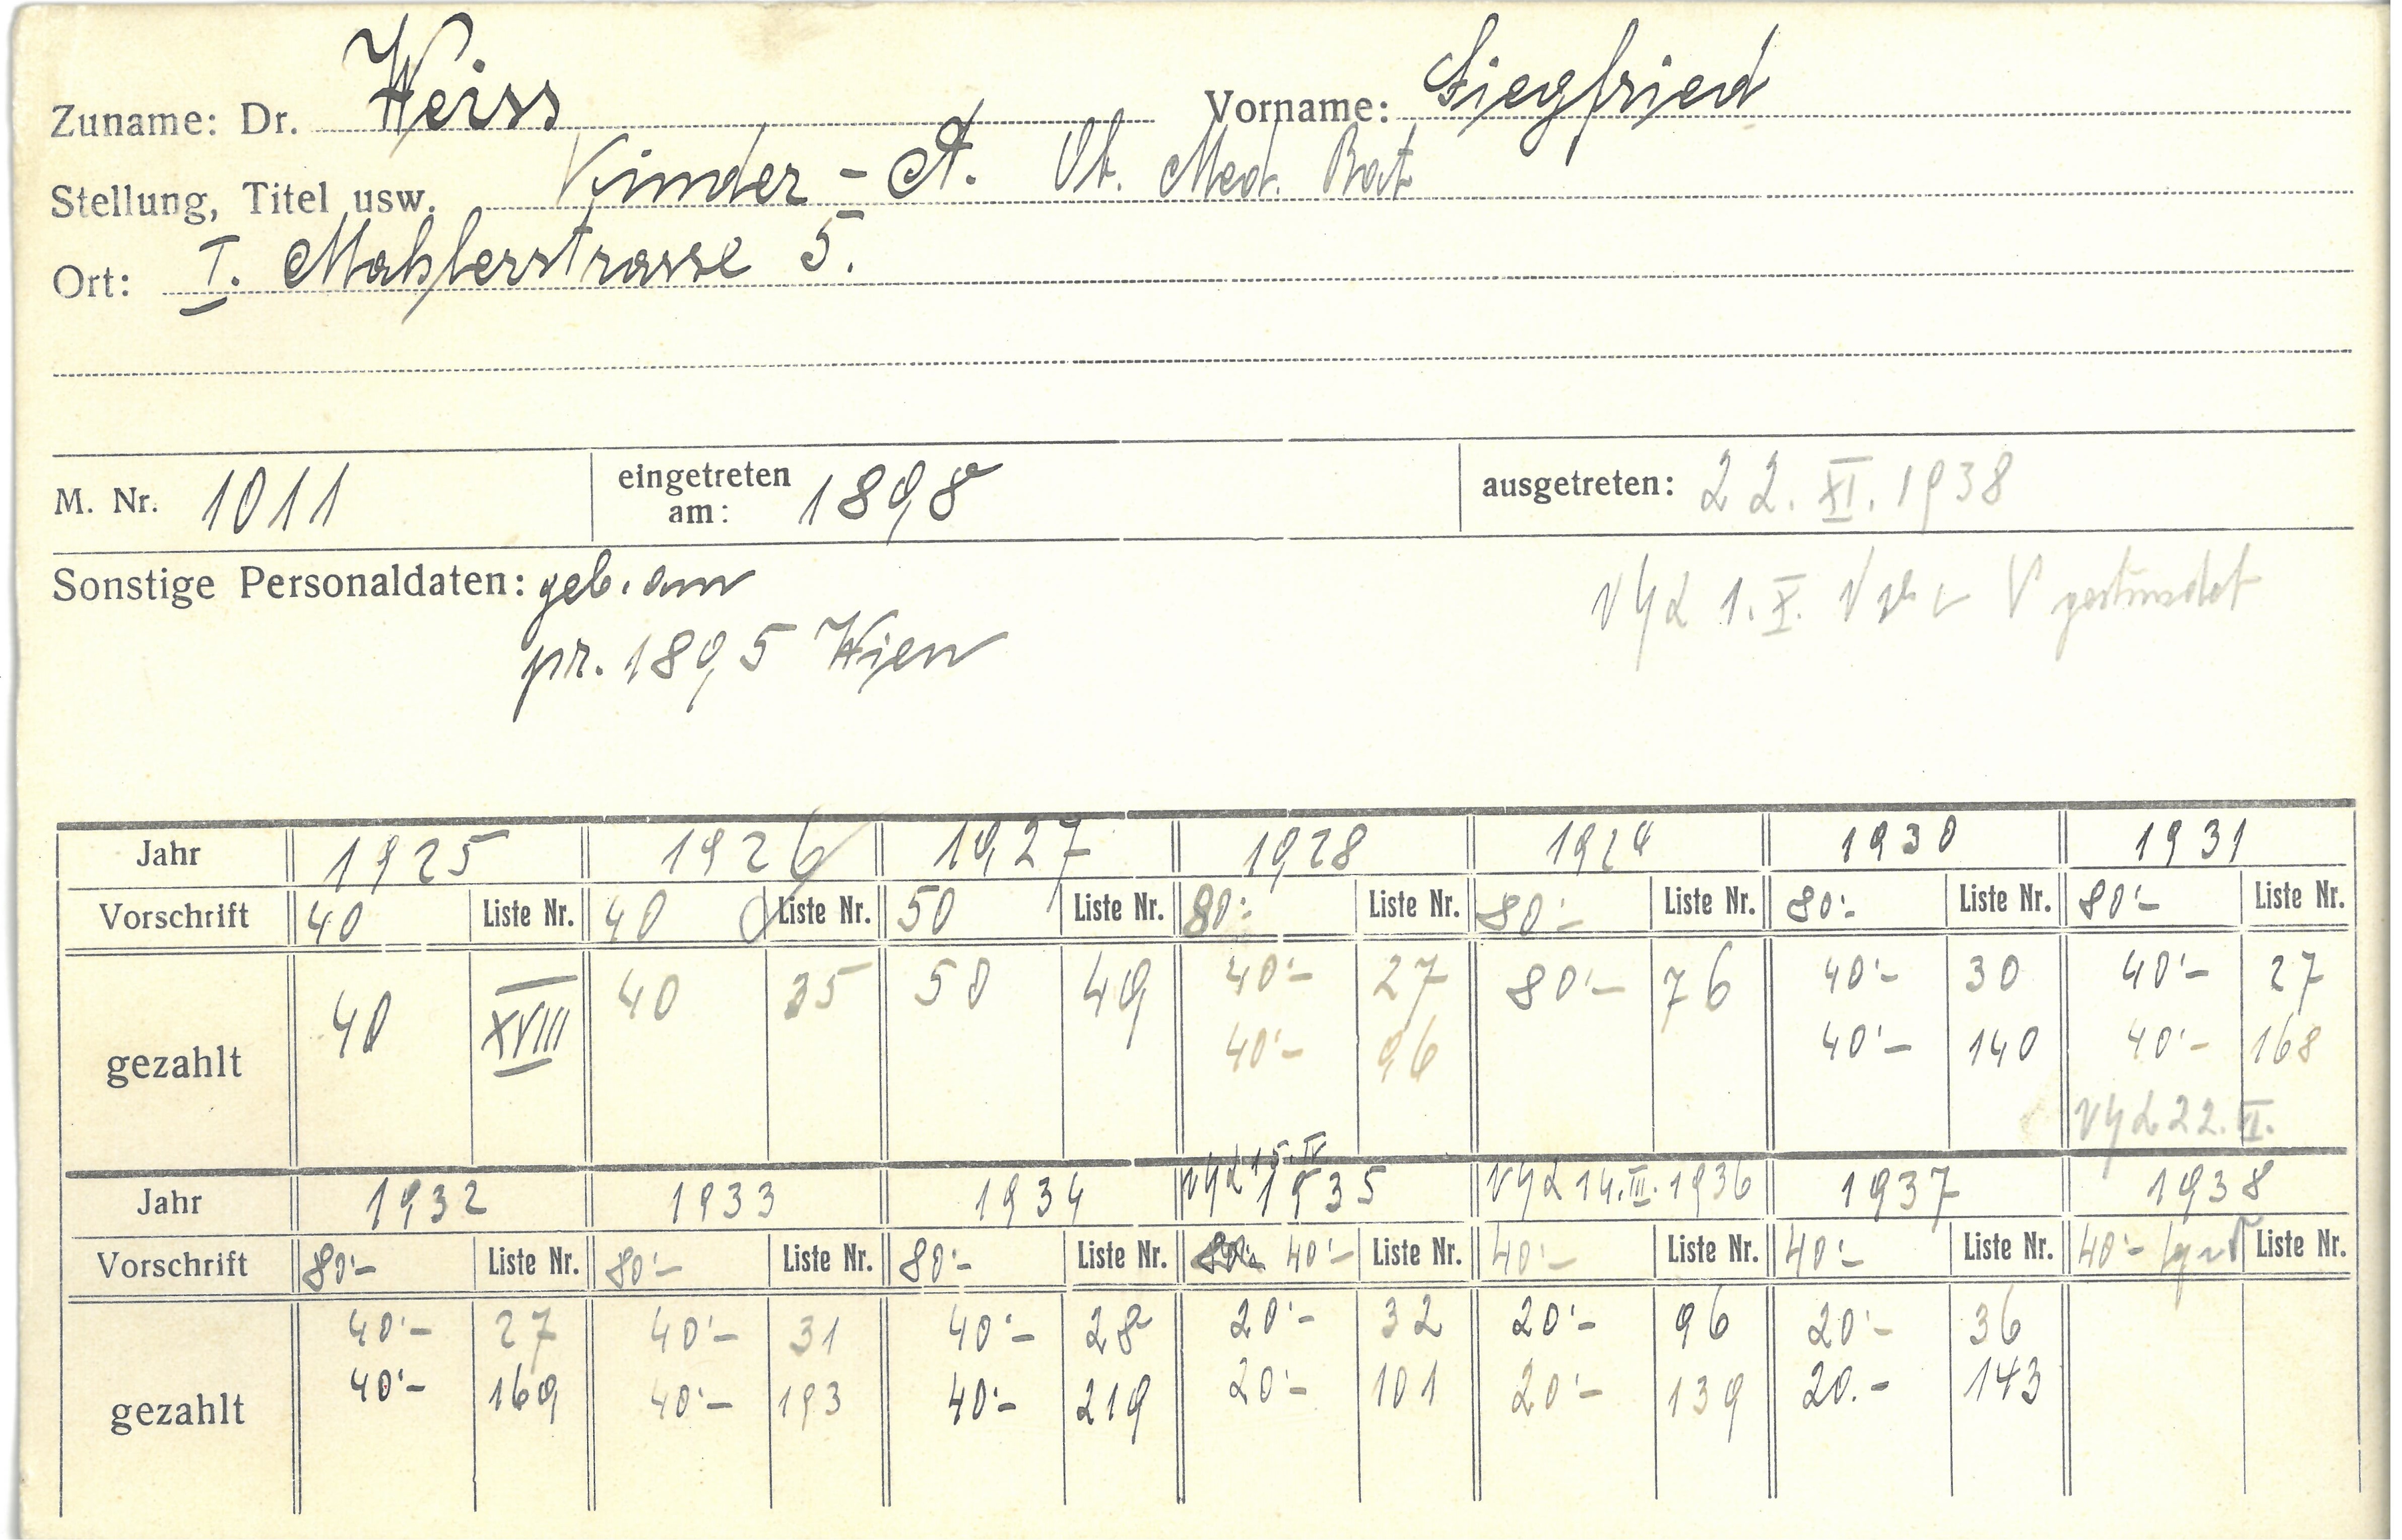 Zuname: Dr. Weiss Vorname: Siegfried
Stellung, Titel usw. Kinder-A. Ob. Med. Rat
Ort: I. Mahlerstrasse 5.
M. Nr. 1011 eingetreten am: 1898 ausgetreten: 22. XI. 1938
Sonstige Personaldaten: geb. am
1. X. gestundet
pr. 1895 Wien
Jahr 1925 1926 1927 1928 1929 1930 1931
Vorschrift 40 Liste Nr. 40 Liste Nr. 50 Liste Nr. 80'- Liste Nr. 80'- Liste Nr. 80'- Liste Nr. 80'- Liste Nr.
gezahlt 40 XVIII 40 35 50 49 40'- 27 80'- 76 40'- 30 40'- 27
40'- 96 40'- 140 40'- 168
22. VI.
15. IV
Jahr 1932 1933 1934 1935 14. III. 1936 1937 1938
Vorschrift 80'- Liste Nr. 80'- Liste Nr. 80'- Liste Nr. 80'- 40'- Liste Nr. 40'- Liste Nr. 40'- Liste Nr. 40'- Liste Nr.
gezahlt 40'- 27 40'- 31 40'- 28 20'- 32 20'- 96 20'- 36
40'- 169 40'- 193 40'- 219 20'- 101 20'- 139 20.- 143